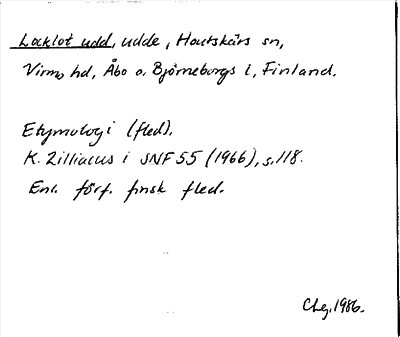 Locklot udd, udde, Houtskärs sn,
Virmo hd, Åbo o. Björneborgs l, Finland.
Etymologi (fled).
K. Zilliacus i SNF 55 (1966), s. 118.
Enl. förf. finsk fled.
1986.